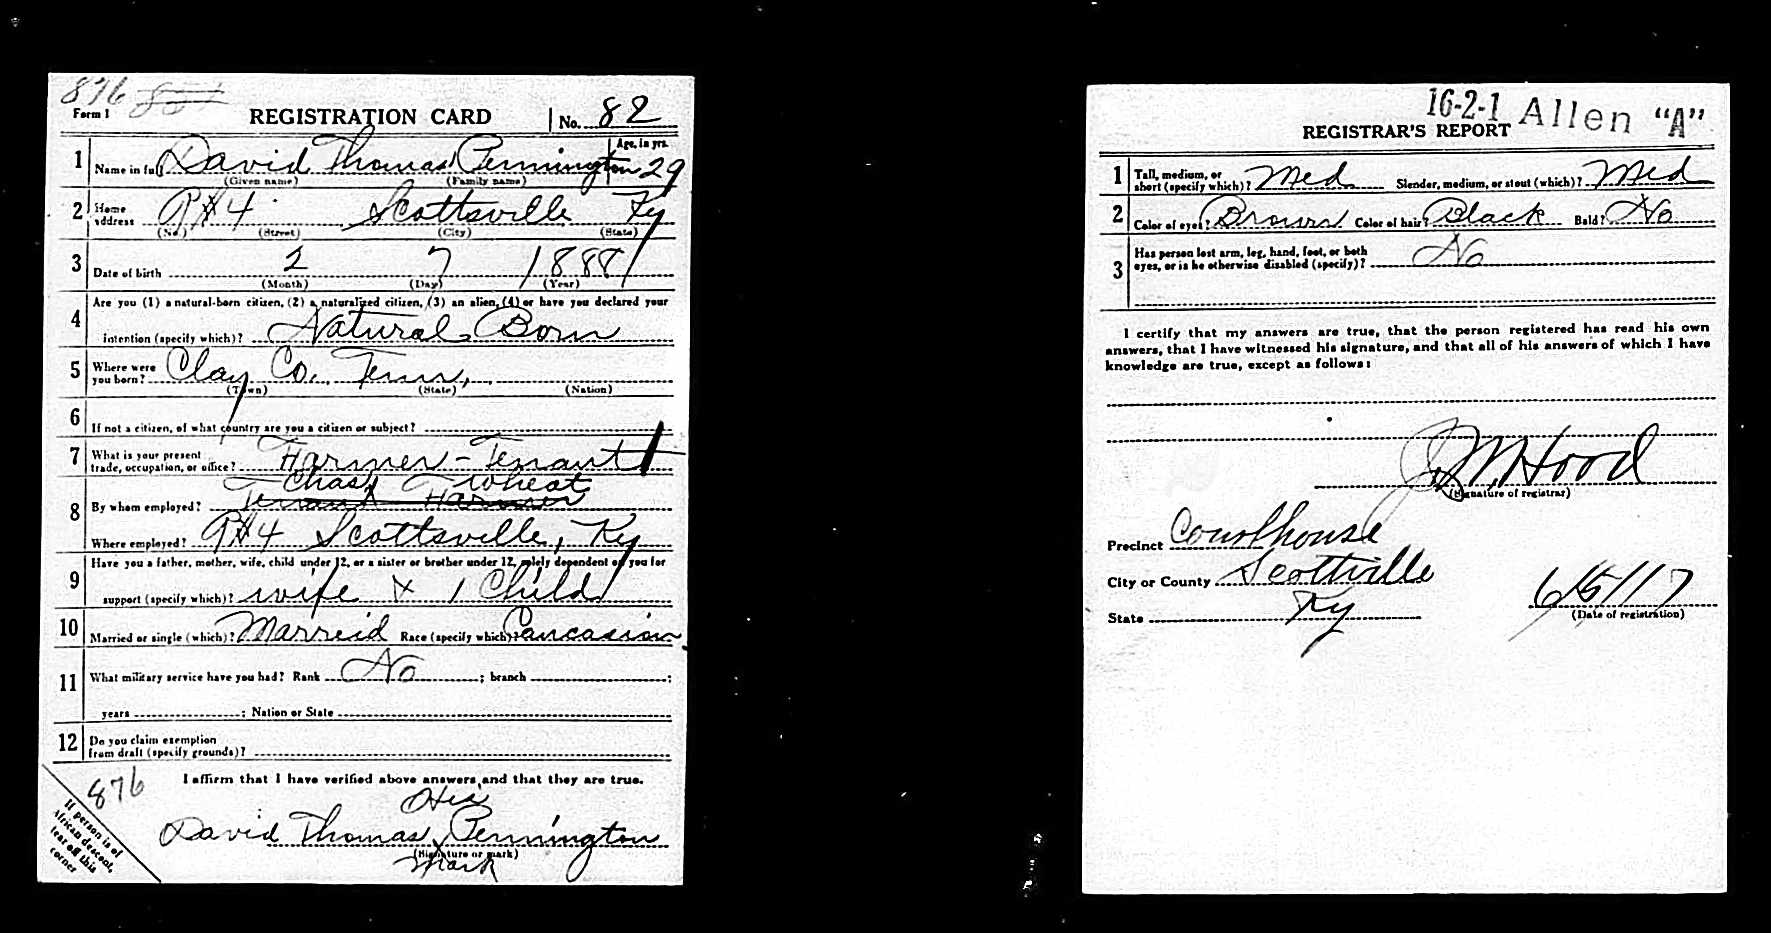 876
Form 1 REGISTRATION CARD No. 82
1 Name in full David Thomas Pennington Age, in yrs. 29
(Given name) (Family name)
2 Home address R#4 Scottsville Ky
(No.) (Street) (City) (State)
3 Date of birth 2 7 1888
(Month) (Day) (Year)
4 Are you (1) a natural-born citizen, (2) a naturalized citizen, (3) an alien, (4) or have you declared your
intention (specify which)? Natural Born
5 Where were you born? Clay Co., Tenn,
(Town) (State) (Nation)
6 If not a citizen, of what country are you a citizen or subject?
7 What is your present
trade, occupation, or office? Farmer - Tenant
Chas. Wheat
8 By whom employed? Tenant Farmer
Where employed? R#4 Scottsville, Ky
9 Have you a father, mother, wife, child under 12, or a sister or brother under 12, solely dependent on you for
support (specify which)? wife & 1 Child
10 Married or single (which)? Marreid Race (specify which)? Cancasion
11 What military service have you had? Rank No ; branch ;
years ; Nation or State
12 Do you claim exemption
from draft (specify grounds)?
I affirm that I have verified above answers and that they are true.
876
His
David Thomas Pennington
(Signature or mark)
Mark
If person is of
African descent,
tear off this
corner
16-2-1 Allen "A"
REGISTRAR'S REPORT
1 Tall, medium, or
short (specify which)? Med Slender, medium, or stout (which)? Med
2 Color of eyes? Brown Color of hair? Black Bald? No
3 Has person lost arm, leg, hand, foot, or both
eyes, or is he otherwise disabled (specify)? No
I certify that my answers are true, that the person registered has read his own
answers, that I have witnessed his signature, and that all of his answers of which I have
knowledge are true, except as follows:
J. M. Hood
(Signature of registrar)
Precinct Courthouse
City or County Scottville
State Ky
6/5/17
(Date of registration)